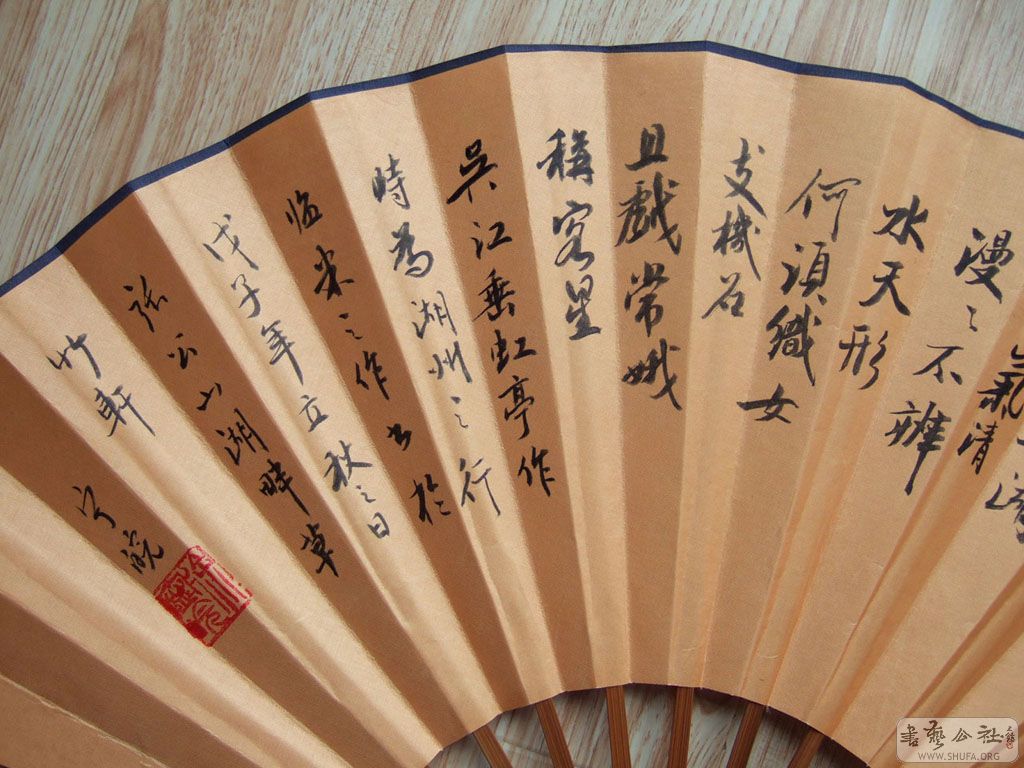 氣清
漫〻不辨
水天形
何須織女
支機石
且戲常娥
稱客星
吳江垂虹亭作
時為湖州之行
临米之作书於
戊子年立秋之日
張公山湖畔草
竹軒
宁皖
書藝公社
WWW.SHUFA.ORG